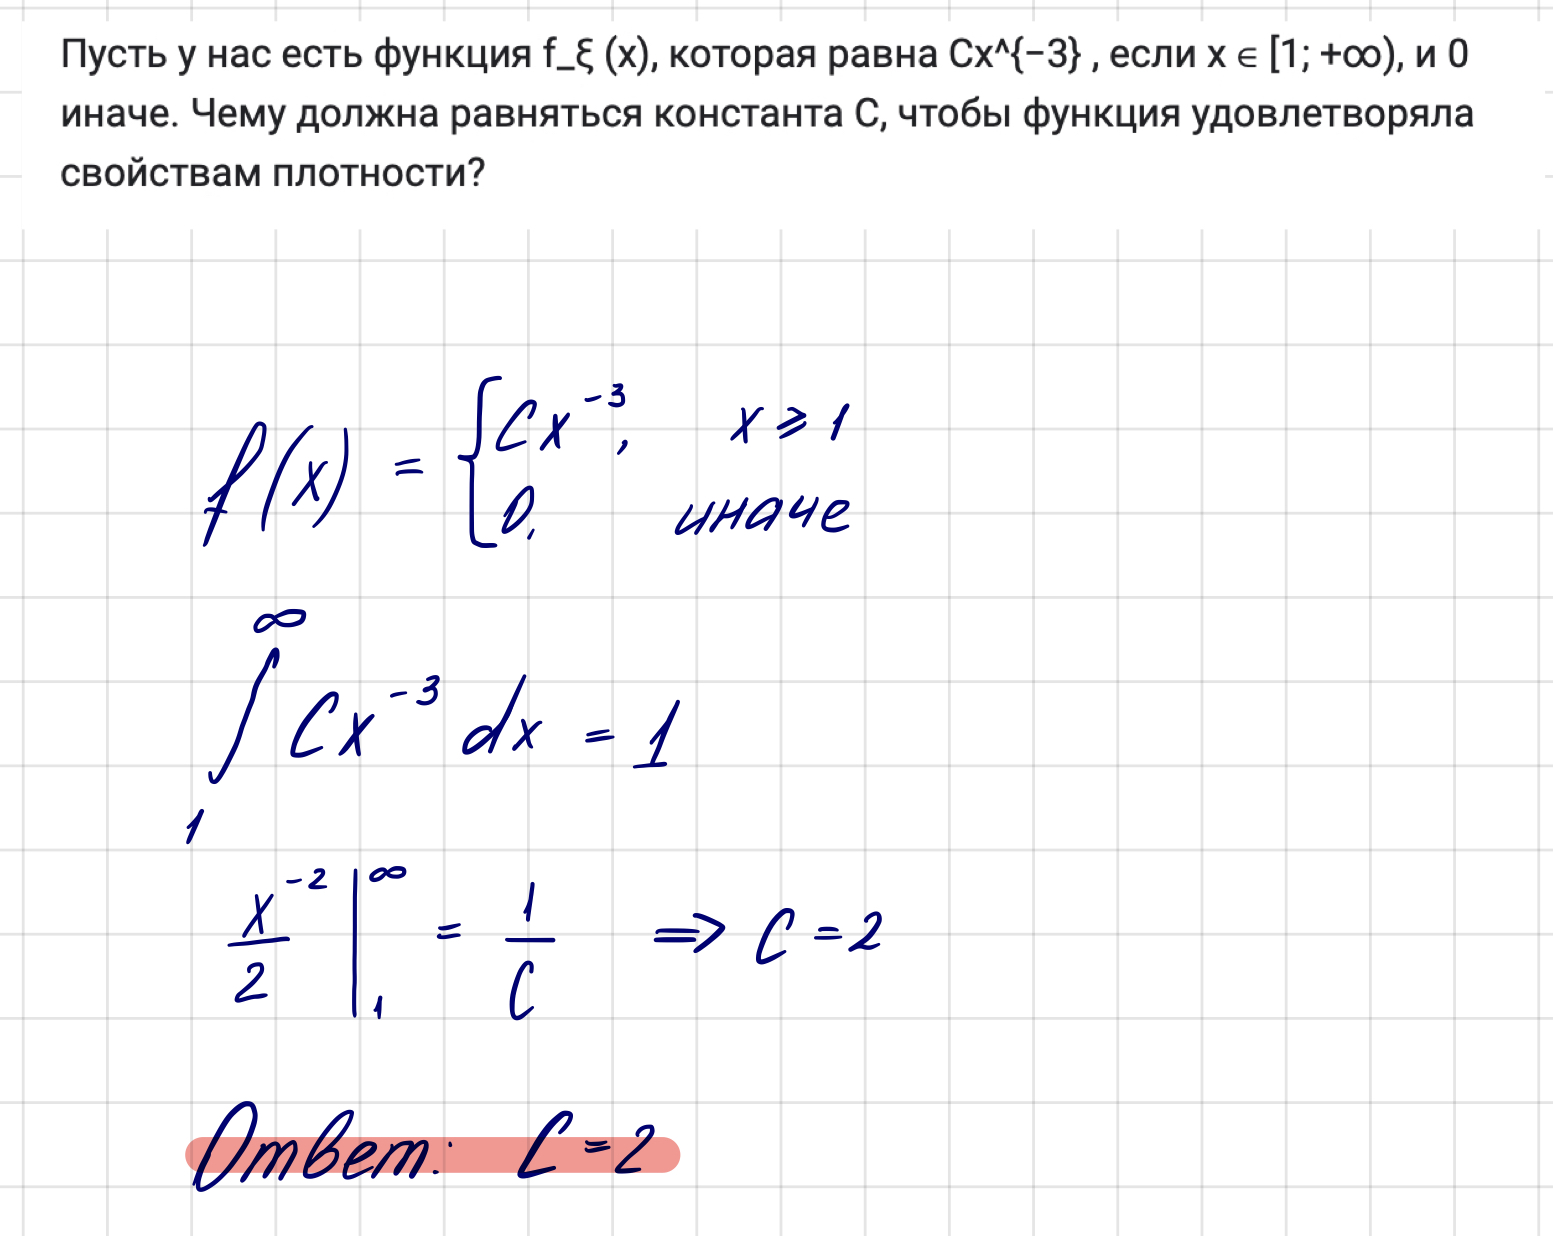 Пусть у нас есть функция f_ξ (x), которая равна Cx^{−3} , если x ∈ [1; +∞), и 0
иначе. Чему должна равняться константа C, чтобы функция удовлетворяла
свойствам плотности?
f(x) = { Cx^{-3}, x ⩾ 1
0, иначе
∫_1^∞ Cx^{-3} dx = 1
x^{-2}/2 |_1^∞ = 1/C ⇒ C = 2
Ответ: C = 2